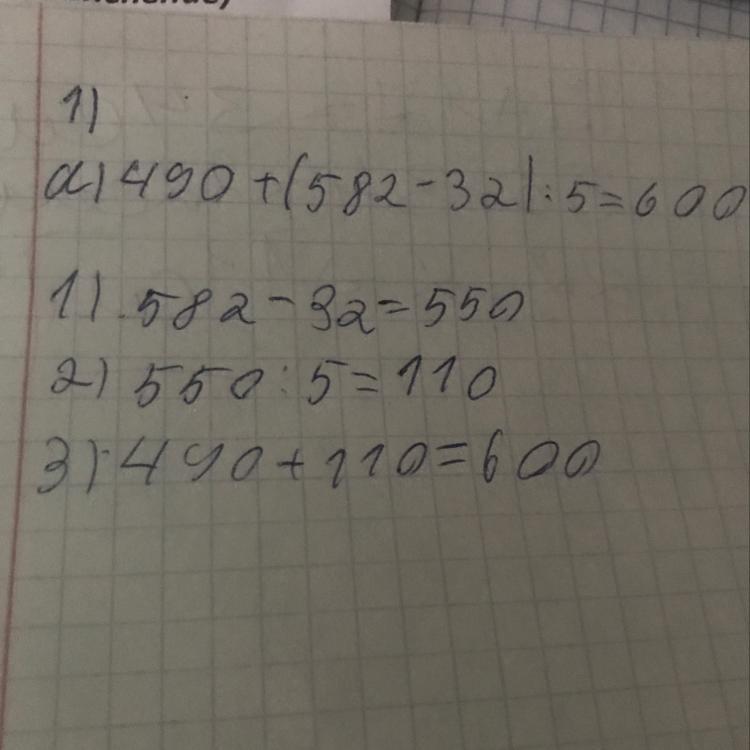 1)
a) 490 + (582 - 32) : 5 = 600
1) 582 - 32 = 550
2) 550 : 5 = 110
3) 490 + 110 = 600